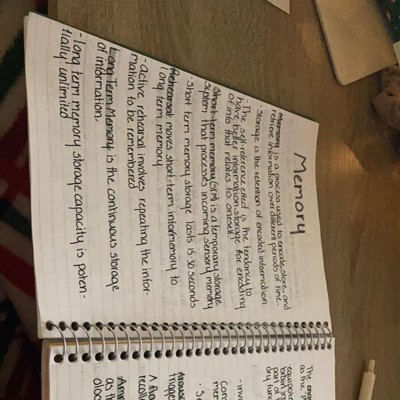 Memory
Memory is a process used to encode, store, and
retrieve information over different periods of time.
- Storage is the retention of encoded information
The self-reference effect is the tendency to
have better information storage for encoding
of info that relates to oneself.
Short-term memory (STM) is a temporary storage
system that processes incoming sensory memory
- Short term memory storage lasts 15-30 seconds
Rehearsal moves short-term info memory to
long term memory
- active rehearsal involves repeating the infor-
mation to be remembered
Long Term Memory is the continuous storage
of information.
- long term memory storage capacity is poten-
tially unlimited